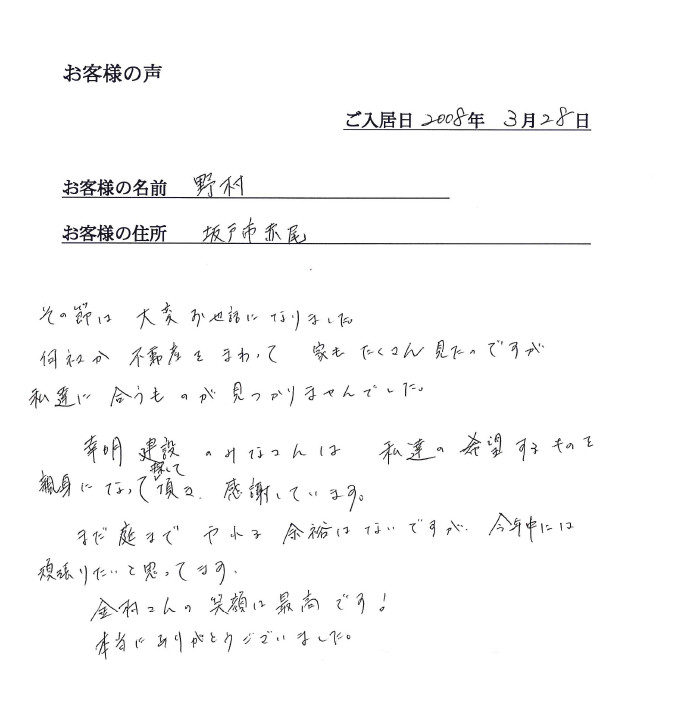 お客様の声
ご入居日 2008年 3月28日
お客様の名前 野村
お客様の住所 坂戸市赤尾
その節は 大変 お世話になりました
何社か 不動産を まわって 家も たくさん 見たのですが
私達に 合うものが 見つかりませんでした。
幸明 建設 のみなさんは 私達の 希望するものを
親身になって 探して 頂き、感謝しています。
まだ 庭まで やれる 余裕はないですが、今年中には
頑張りたいと思ってます。
金村さんの 笑顔は 最高です!
本当にありがとうございました。